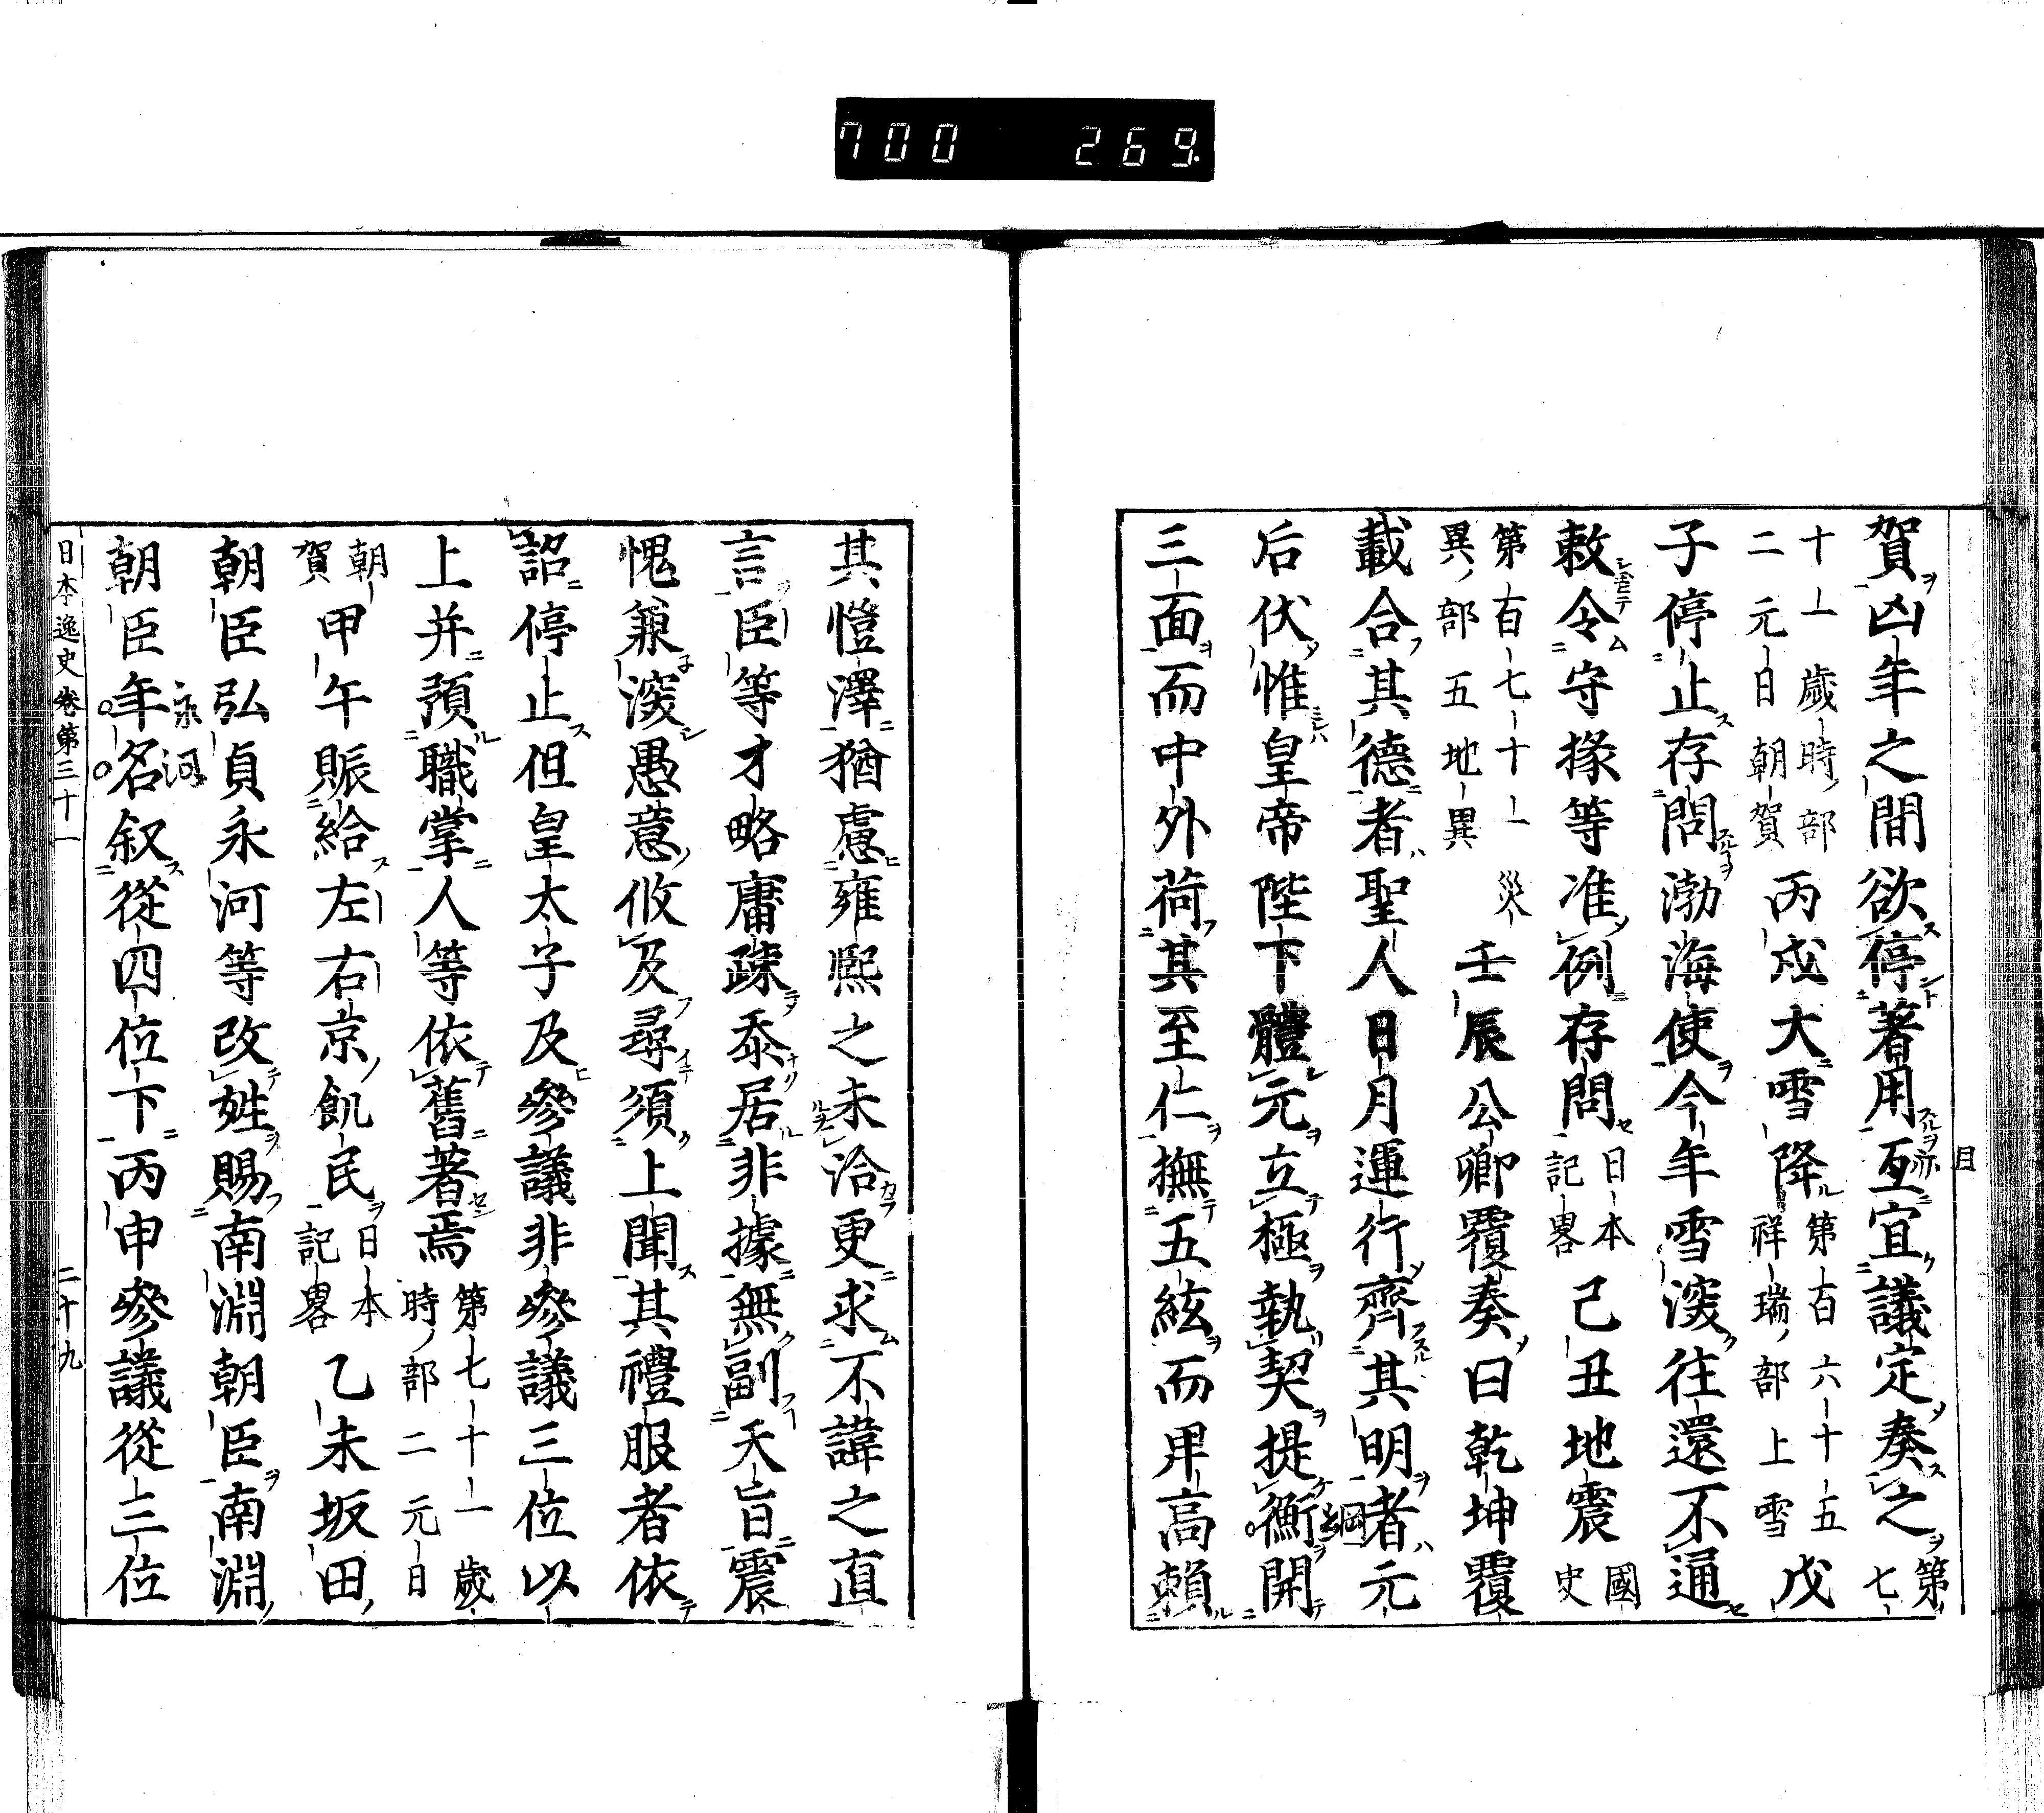 700 269
賀凶年之間欲停著用亙宜議定奏之第七
十一歲時部二元日朝賀丙戌大雪降第百六十五祥瑞部上雪戊
子停止存問渤海使今年雪深往還不通
敕令守掾等准例存問日本記畧己丑地震國史
第百七十一災異部五地異壬辰公卿覆奏曰乾坤覆
載合其德者聖人日月運行齊其明者元
后伏惟皇帝陛下體元立極執契提衡開
三面而中外荷其至仁撫五絃而卑高賴
其愷澤猶慮雍熙之未洽更求不諱之直
言臣等才略庸疎忝居非據無副天旨震
愧兼深愚意攸及尋須上聞其禮服者依
詔停止但皇太子及參議非參議三位以
上并預職掌人等依舊著焉第七十一歲時部二元日
朝賀甲午賑給左右京飢民日本記畧乙未坂田
朝臣弘貞永河等改姓賜南淵朝臣南淵
朝臣年名叙從四位下丙申參議從三位
永河
日本逸史卷第三十一
二十九